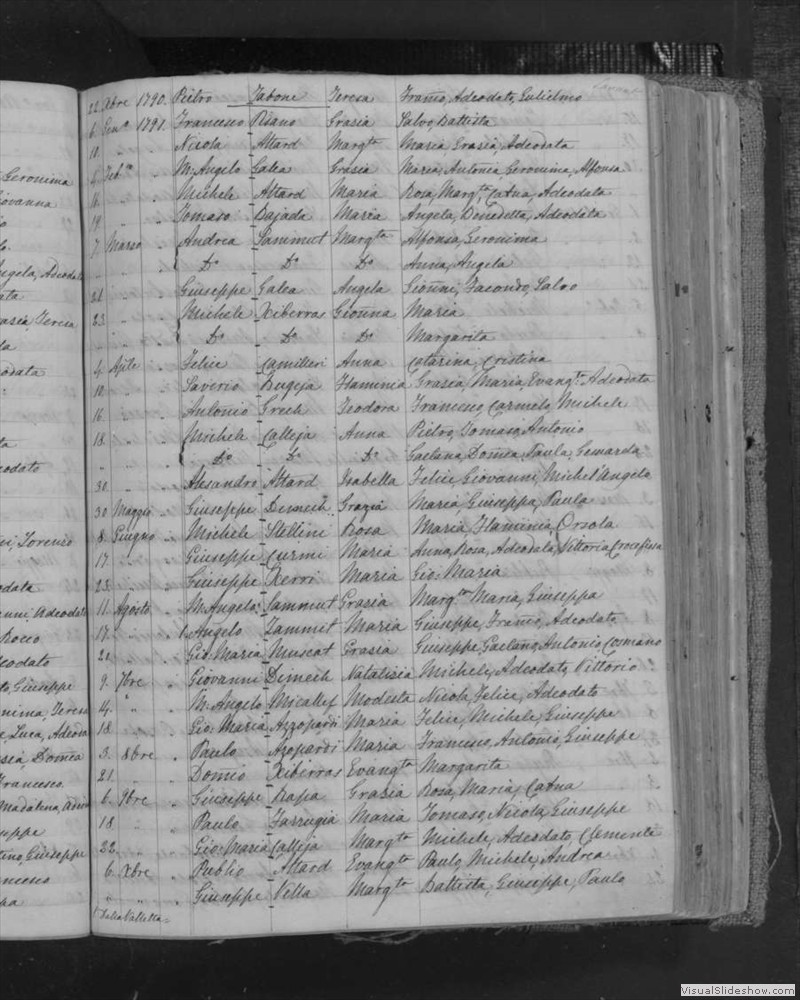 Geronima
Giovanna
Angela, Adeodata
Grasia Teresa
Adeodata
Adeodato
Lorenzo
Adeodata
Rocco
Adeodato
Giuseppe
Teresa
Luca, Adeoda
Domca
Francesco
Madalena
Giuseppe
Francesco
22 Xbre 1790. Pietro Tabone Teresa Franco, Adeodato, Gulielmo
6 Genro 1791. Francesco Pisano Grasia Salvo, Battista
10 " " Nicola Attard Margta Maria Grasia, Adeodata
5 Febro " M. Angelo Galea Grasia Maria, Antonia, Geronima, Alfonsa
" " Michele Attard Maria Rosa, Margta, Catna, Adeodata
19 " " Tomaso Bajada Maria Angela, Benedetta, Adeodata
7 Marzo " Andrea Sammut Margta Alfonsa, Geronima
" " " Do Do Do Anna, Angela
21 " " Giuseppe Galea Angela Gionni, Facondo, Salvo
23 " " Michele Xiberras Gionna Maria
" " " Do Do Do Margarita
4 Aple " Felice Camilleri Anna Catarina, Cristina
10 " " Saverio Bugeja Flaminia Grasia, Maria, Evangta, Adeodata
16 " " Antonio Grech Teodora Francesco, Carmelo, Michele
18 " " Michele Calleja Anna Pietro, Tomaso, Antonio
" " " Do Do Do Gaetana, Domca, Paula,
30 " " Alesandro Attard Isabella Felice, Giovanni, Michel'Angelo
30 Maggio " Giuseppe Dimech Grazia Maria, Giuseppa, Paula
8 Giugno " Michele Stellini Rosa Maria, Flaminia, Orsola
17 " " Giuseppe Curmi Maria Anna, Rosa, Adeodata, Vittoria Crocefissa
23 " " Giuseppe Xerri Maria Gio: Maria
11 Agosto " M. Angelo Sammut Grasia Margta Maria, Giuseppa
17 " " Angelo Zammit Maria Giuseppe, Franco, Adeodato
20 " " Gio: Maria Muscat Grasia Giuseppe, Gaetano, Antonio, Cosmano
9 7bre " Giovanni Dimech Natalisia Michele, Adeodato, Vittorio
4 " " M. Angelo Micallef Modesta Nicola, Felice, Adeodato
18 " " Gio: Maria Azzopardi Maria Felice, Michele, Giuseppe
3 8bre " Paulo Azopardi Maria Francesco, Antonio, Giuseppe
21 " " Xiberras Evangta Margarita
6 9bre " Giuseppe Rapa Grasia Rosa, Maria, Catna
18 " " Paulo Farrugia Maria Tomaso, Nicola, Giuseppe
22 " " Gio: Maria Calleja Margta Michele, Adeodato, Clemente
6 Xbre " Publio Attard Evangta Paulo, Michele, Andrea
" " " Giuseppe Vella Margta Battista, Giuseppe, Paulo
Valletta
VisualSlideshow.com